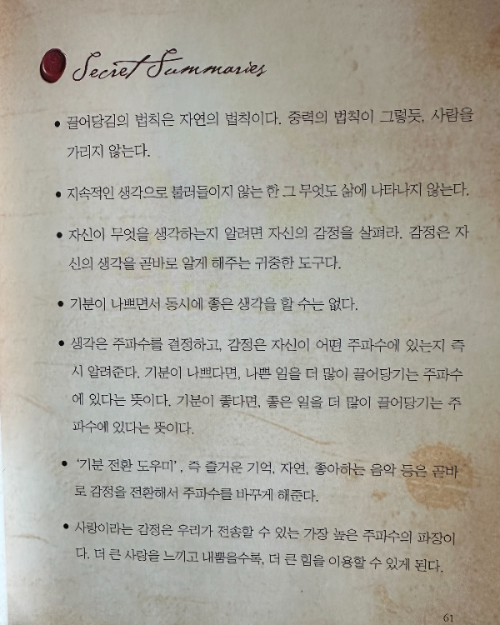 Secret Summaries
• 끌어당김의 법칙은 자연의 법칙이다. 중력의 법칙이 그렇듯, 사람을
가리지 않는다.
• 지속적인 생각으로 불러들이지 않는 한 그 무엇도 삶에 나타나지 않는다.
• 자신이 무엇을 생각하는지 알려면 자신의 감정을 살펴라. 감정은 자
신의 생각을 곧바로 알게 해주는 귀중한 도구다.
• 기분이 나쁘면서 동시에 좋은 생각을 할 수는 없다.
• 생각은 주파수를 결정하고, 감정은 자신이 어떤 주파수에 있는지 즉
시 알려준다. 기분이 나쁘다면, 나쁜 일을 더 많이 끌어당기는 주파수
에 있다는 뜻이다. 기분이 좋다면, 좋은 일을 더 많이 끌어당기는 주
파수에 있다는 뜻이다.
• '기분 전환 도우미', 즉 즐거운 기억, 자연, 좋아하는 음악 등은 곧바
로 감정을 전환해서 주파수를 바꾸게 해준다.
• 사랑이라는 감정은 우리가 전송할 수 있는 가장 높은 주파수의 파장이
다. 더 큰 사랑을 느끼고 내뿜을수록, 더 큰 힘을 이용할 수 있게 된다.
61